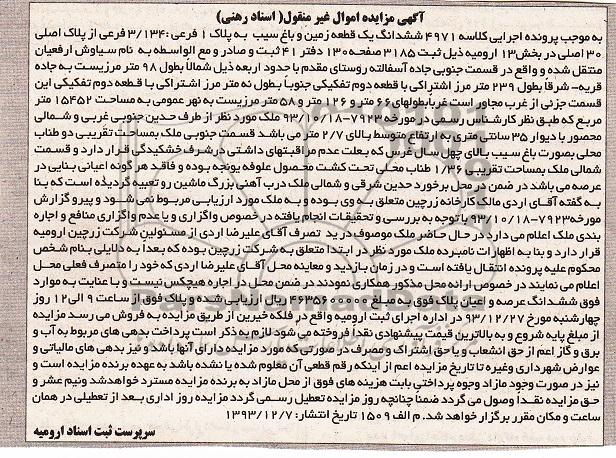 آگهی مزایده اموال غیر منقول( اسناد رهنی)
به موجب پرونده اجرایی کلاسه ۴۹۷۱ ششدانگ یک قطعه زمین و باغ سیب به پلاک ۱ فرعی ۳/۱۳۴۰ فرعی از پلاک اصلی
۳۰ اصلی در بخش ۱۳ ارومیه ذیل ثبت ۳۱۸۵ صفحه ۱۳۰ دفتر ۴۱ ثبت و صادر و مع الواسطه به نام سیاوش ارفعیان
منتقل شده و واقع در قسمت جنوبی جاده آسفالته روستای مقدم با حدود اربعه ذیل شمالاً بطول ۹۸ متر مرزیست به جاده
قریه- شرقا بطول ۲۳۹ متر مرز اشتراکی با قطعه دوم تفکیکی جنوباً بطول نه متر مرز اشتراکی با قطعه دوم تفکیکی این
قسمت جزئی از غرب مجاور است غرباً بطولهای ۶۶ متر و ۱۲۶ متر و ۵۸ متر مرزیست به نهر عمومی به مساحت ۱۵۴۵۲ متر
مربع که طبق نظر کارشناس رسمی در مورخه ۷۹۲۳-۹۳/۱۰/۱۸ ملک مورد نظر از طرف حدین جنوبی غربی و شمالی
محصور با دیوار ۳۵ سانتی متری به ارتفاع متوسط بالای ۲/۷ متر می باشد قسمت جنوبی ملک بمساحت تقریبی دو طناب
محلی بصورت باغ سیب بالای چهل سال غرس که بعلت عدم مراقبتهای داشتی در شرف خشکیدگی قرار دارد و قسمت
شمالی ملک بمساحت تقریبی ۱/۳۶ طناب محلی تحت کشت محصول علوفه یونجه بوده و فاقد هر گونه اعیانی بنایی در
عرصه می باشد در ضمن در محل برخورد حدین شرقی و شمالی ملک درب آهنی بزرگ ماشین رو تعبیه گردیده است که بنا
به گفته آقای اردی مالک کارخانه زرچین متعلق به وی بوده و به ملک مورد ارزیابی مربوط نمی شود و پیرو گزارش
مورخه ۷۹۲۳-۹۳/۱۰/۱۸ با توجه به بررسی و تحقیقات انجام یافته در خصوص واگزاری و یا عدم واگزاری منافع و اجاره
بندی ملک اعلام می دارد در حال حاضر ملک موصوف در ید تصرف آقای علیرضا اردی از مسئولین شرکت زرچین ارومیه
قرار دارد و بنا به اظهارات نامبرده ملک مورد نظر در ابتدا متعلق به شرکت زرچین بوده که بعدا به دلایلی بنام شخص
محکوم علیه پرونده انتقال یافته است و در زمان بازدید و معاینه محل آقای علیرضا اردی که خود را متصرف فعلی محل
اعلام می نمایند در خصوص ارائه محل مذکور همکاری نمودند در ضمن محل در اجاره هیچکس نیست و با عنایت به موارد
فوق ششدانگ عرصه و اعیان پلاک فوق به مبلغ ریال ارزیابی شده و پلاک فوق از ساعت ۹ الی ۱۲ روز
چهارشنبه مورخ ۹۳/۱۲/۲۷ در اداره اجرای ثبت ارومیه واقع در فلکه خیرین از طریق مزایده به فروش می رسد مزایده
از مبلغ پایه شروع و به بالاترین قیمت پیشنهادی نقداً فروخته می شود لازم به ذکر است پرداخت بدهی های مربوط به آب و
برق و گاز اعم از حق انشعاب و یا حق اشتراک و مصرف در صورتی که مورد مزایده دارای آنها باشد و نیز بدهی های مالیاتی و
عوارض شهرداری وغیره تا تاریخ مزایده اعم از اینکه رقم قطعی آن معلوم شده یا نشده باشد به عهده برنده مزایده است و
نیز در صورت وجود مازاد وجوه پرداختی بابت هزینه های فوق از محل مازاد به برنده مزایده مسترد خواهد شد ونیم عشر و
حق مزایده نقداً وصول می گردد ضمناً چنانچه روز مزایده تعطیل رسمی گردد مزایده روز اداری بعد از تعطیلی در همان
ساعت و مکان مقرر برگزار خواهد شد. م الف ۱۵۰۹ تاریخ انتشار: ۱۳۹۳/۱۲/۷
سرپرست ثبت اسناد ارومیه